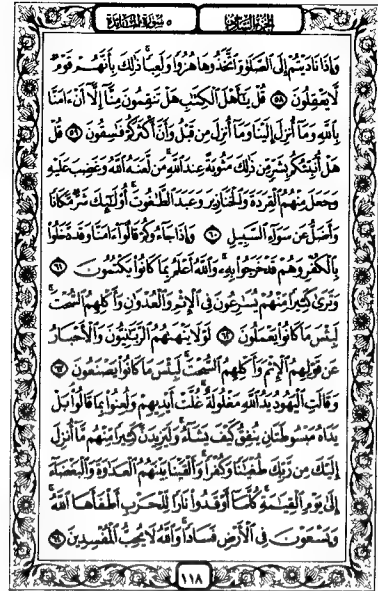 الجزء السادس ٥ سورة المائدة
وَإِذَا نَادَيْتُمْ إِلَى الصَّلَوٰةِ اتَّخَذُوهَا هُزُوًا وَلَعِبًا ذَٰلِكَ بِأَنَّهُمْ قَوْمٌ
لَّا يَعْقِلُونَ ٥٨ قُلْ يَٰٓأَهْلَ الْكِتَٰبِ هَلْ تَنقِمُونَ مِنَّآ إِلَّآ أَنْ ءَامَنَّا
بِاللَّهِ وَمَآ أُنزِلَ إِلَيْنَا وَمَآ أُنزِلَ مِن قَبْلُ وَأَنَّ أَكْثَرَكُمْ فَٰسِقُونَ ٥٩ قُلْ
هَلْ أُنَبِّئُكُم بِشَرٍّ مِّن ذَٰلِكَ مَثُوبَةً عِندَ اللَّهِ مَن لَّعَنَهُ اللَّهُ وَغَضِبَ عَلَيْهِ
وَجَعَلَ مِنْهُمُ الْقِرَدَةَ وَالْخَنَازِيرَ وَعَبَدَ الطَّٰغُوتَ أُو۟لَٰٓئِكَ شَرٌّ مَّكَانًا
وَأَضَلُّ عَن سَوَآءِ السَّبِيلِ ٦٠ وَإِذَا جَآءُوكُمْ قَالُوٓا ءَامَنَّا وَقَد دَّخَلُوا
بِالْكُفْرِ وَهُمْ قَدْ خَرَجُوا بِهِۦ وَاللَّهُ أَعْلَمُ بِمَا كَانُوا يَكْتُمُونَ ٦١
وَتَرَىٰ كَثِيرًا مِّنْهُمْ يُسَٰرِعُونَ فِي الْإِثْمِ وَالْعُدْوَٰنِ وَأَكْلِهِمُ السُّحْتَ
لَبِئْسَ مَا كَانُوا يَعْمَلُونَ ٦٢ لَوْلَا يَنْهَىٰهُمُ الرَّبَّٰنِيُّونَ وَالْأَحْبَارُ
عَن قَوْلِهِمُ الْإِثْمَ وَأَكْلِهِمُ السُّحْتَ لَبِئْسَ مَا كَانُوا يَصْنَعُونَ ٦٣
وَقَالَتِ الْيَهُودُ يَدُ اللَّهِ مَغْلُولَةٌ غُلَّتْ أَيْدِيهِمْ وَلُعِنُوا بِمَا قَالُوا بَلْ
يَدَاهُ مَبْسُوطَتَانِ يُنفِقُ كَيْفَ يَشَآءُ وَلَيَزِيدَنَّ كَثِيرًا مِّنْهُم مَّآ أُنزِلَ
إِلَيْكَ مِن رَّبِّكَ طُغْيَٰنًا وَكُفْرًا وَأَلْقَيْنَا بَيْنَهُمُ الْعَدَٰوَةَ وَالْبَغْضَآءَ
إِلَىٰ يَوْمِ الْقِيَٰمَةِ كُلَّمَآ أَوْقَدُوا نَارًا لِّلْحَرْبِ أَطْفَأَهَا اللَّهُ
وَيَسْعَوْنَ فِي الْأَرْضِ فَسَادًا وَاللَّهُ لَا يُحِبُّ الْمُفْسِدِينَ ٦٤
١١٨